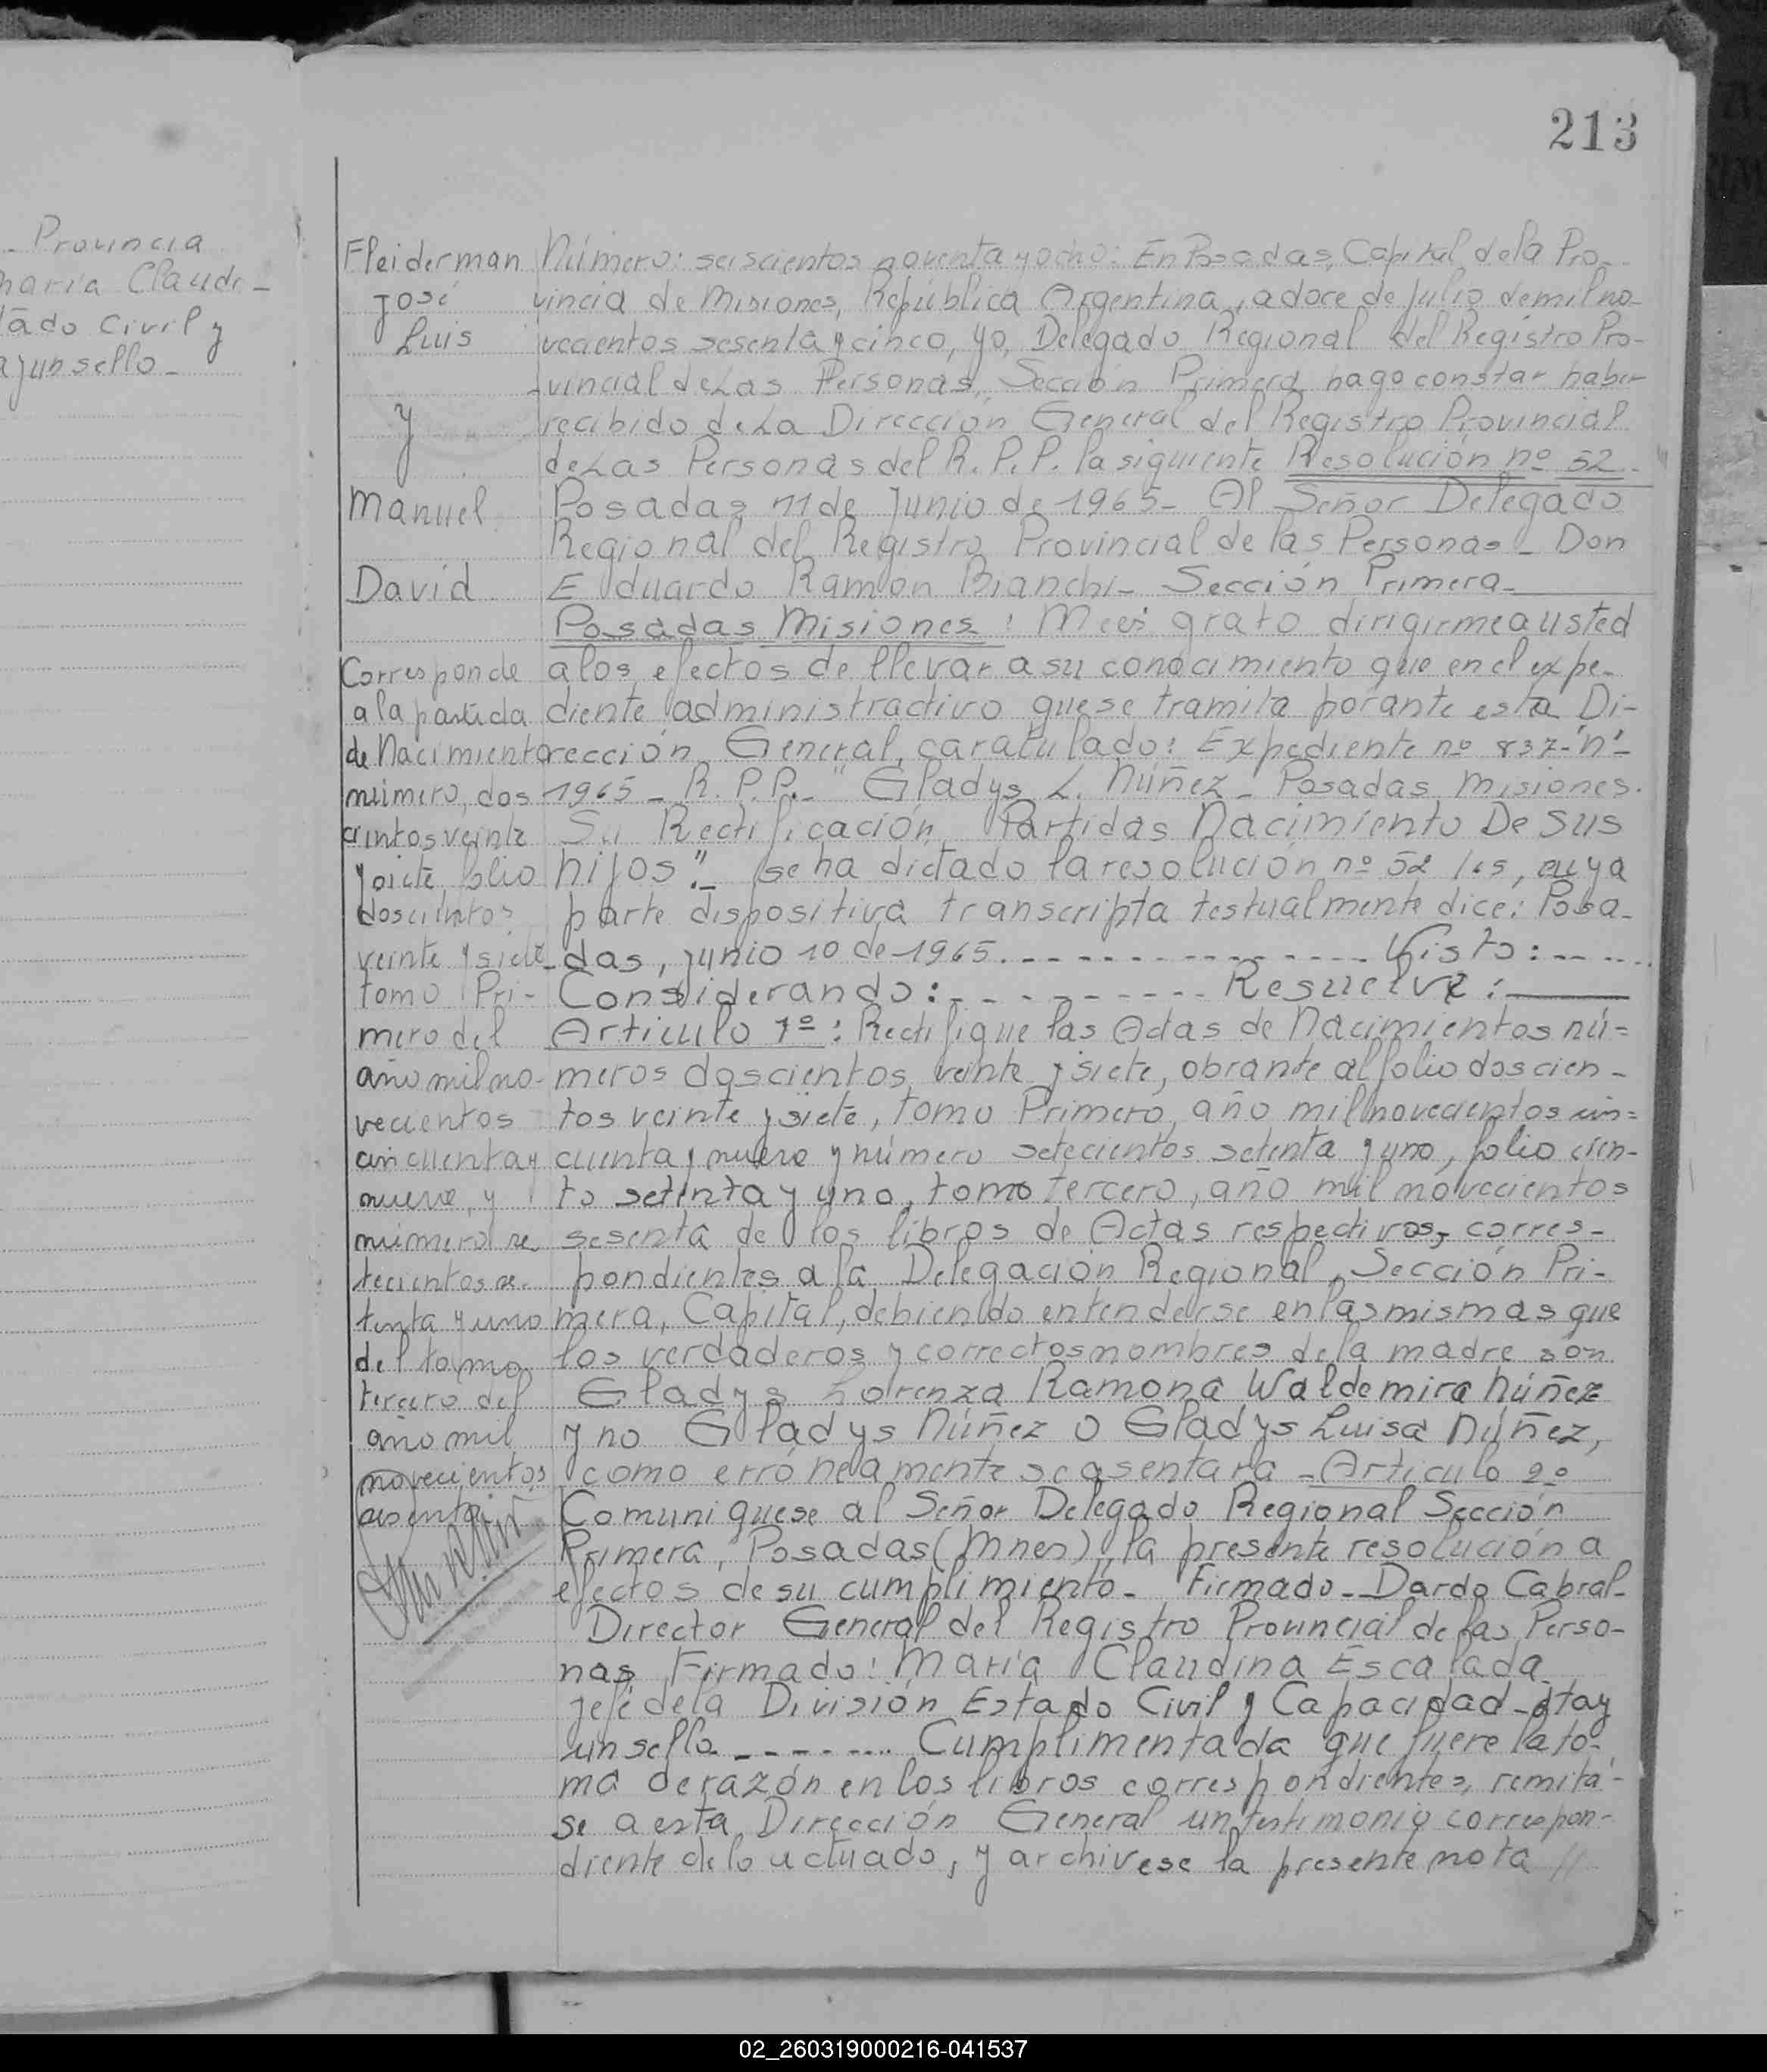 213
- Provincia
maría Claudi-
tado Civil y
a y un sello-
Fleiderman
José
Luis
y
Manuel
David
Corresponde
a la partida
de Nacimiento
número, dos
cientos veinte
y siete, folio
doscientos
veinte y siete
tomo Pri-
mero del
año mil no-
vecientos
cincuenta y
nueve, y
número se
tecientos se-
tenta y uno
del tomo
tercero del
año mil
novecientos
sesenta
Número: seiscientos noventa y ocho: En Posadas, Capital de la Pro-
vincia de Misiones, República Argentina, a doce de Julio de mil no-
vecientos sesenta y cinco, yo, Delegado Regional del Registro Pro-
-vincial de Las Personas, Sección Primera hago constar haber
recibido de La Dirección General del Registro Provincial
de Las Personas del R. P. P. la siguiente Resolución nº 52
Posadas 11 de Junio de 1965- Al Señor Delegado
Regional del Registro Provincial de las Personas - Don
Eduardo Ramon Bianchi- Sección Primera-
Posadas Misiones: Me es grato dirigirme a usted
a los efectos de llevar a su conocimiento que en el expe-
diente administractivo que se tramita por ante esta Di-
rección General, caratulado: Expediente nº 837-"N"-
1965- R. P. P.- " Gladys L. Núñez - Posadas Misiones.
Su Rectificación Partidas Nacimiento De sus
hijos".- se ha dictado la resolución nº 52/65, cuya
parte dispositiva transcripta testualmente dice: Posa-
das, junio 10 de 1965. - - - - - - - - - - - - - Visto: - - - - -
Considerando: - - - - - - - - - - Resuelve:
Articulo 1º: Rectifique las Actas de Nacimientos nú=
meros doscientos veinte y siete, obrante al folio doscien-
tos veinte y siete, tomo Primero, año mil novecientos cin=
cuenta y nueve y número setecientos setenta y uno, folio cien-
to setenta y uno, tomo tercero, año mil novecientos
sesenta de los libros de Actas respectivos, corres-
pondientes a la Delegación Regional, Sección Pri-
mera, Capital, debiendo entenderse en las mismas que
los verdaderos y correctos nombres de la madre son
Gladys Lorenza Ramona Waldemira Núñez
y no Gladys Núñez o Gladys Luisa Núñez,
como erróneamente se asentara - Articulo 2º
Comuniquese al Señor Delegado Regional Sección
Primera, Posadas (Mnes), la presente resolución a
efectos de su cumplimiento- Firmado- Dardo Cabral-
Director General del Registro Provincial de las Perso-
nas Firmado: María Claudina Escalada
jefe de la División Estado Civil y Capacidad -
un sello - - - - - - - - Cumplimentada que fuere la to-
ma de razón en los libros correspondientes, remita-
se a esta Dirección General un testimonio correspon-
diente de lo actuado, y archivese la presente nota //
02_260319000216-041537